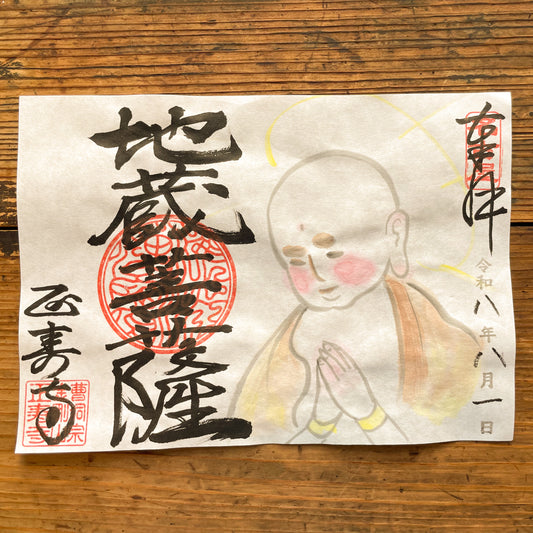 奉拝
令和八年八月一日
地蔵菩薩
正寿寺
曹洞宗
正寿寺